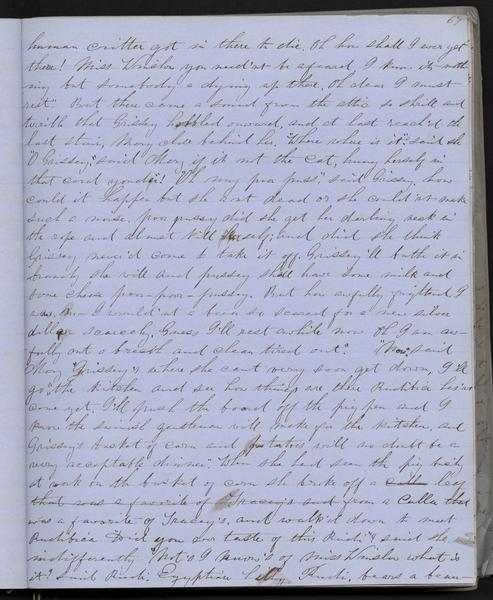 67
human critter got in there to die. Oh how shall I ever get
there! Miss Winslow you need'nt be afeared, I know its noth
ing but somebody a dying up there, Oh dear I must
rest" But there came a sound from the attic so shrill and
terrible that Grissey hobbled onward, and at last reach'd the
last stair, Mary close behind her. "Where where is it", said she
"O Grissey," said Mary if it not the Cat, hung herself in
that cord yonder"! "Oh my poor puss", said Grissey, how
could it happen but she is'nt dead or she could'nt make
such a noise, poor pussey did she get her darling neck in
the rope and almost kill herself; and did she think
Grissey never'd come to take it off, Grissey'll bathe it in
brandy she will and pussey shall have some milk and
some cheese poor-poor-pussey. But how awfully frightend I
was, I would'nt a been so scared for a new silver
dollar scarcely, Guess I'll rest awhile now Oh I am aw-
fully out o breath and clean tired out". "Now" said
Mary Grissey's where she cant very soon get down, I'll
go to the kitchen and see how things are there Rudibia has'nt
come yet, I'll push the board off the pig pen and I
know the swinish gentleman will make for the kitchen, and
Grissey's basket of corn and potatoes will no doubt be a
very acceptable dinner". When she had seen the pig busily
at work on the basket of corn she broke off a leaf
that was a favorite of Tracey's and from a Calla, that
was a favorite of Tracey's, and walk'd down to meet
Rudibia Did you ever taste of this Rudi" said she
indifferently "Not's I know's of miss Winslow what is
it? said Rudi, Egyptian Lilly, Rudi, bears a beau-